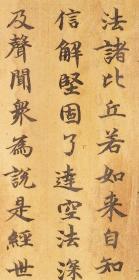 法諸比丘若如来自知
信解堅固了達空法深
及聲聞衆為說是經世